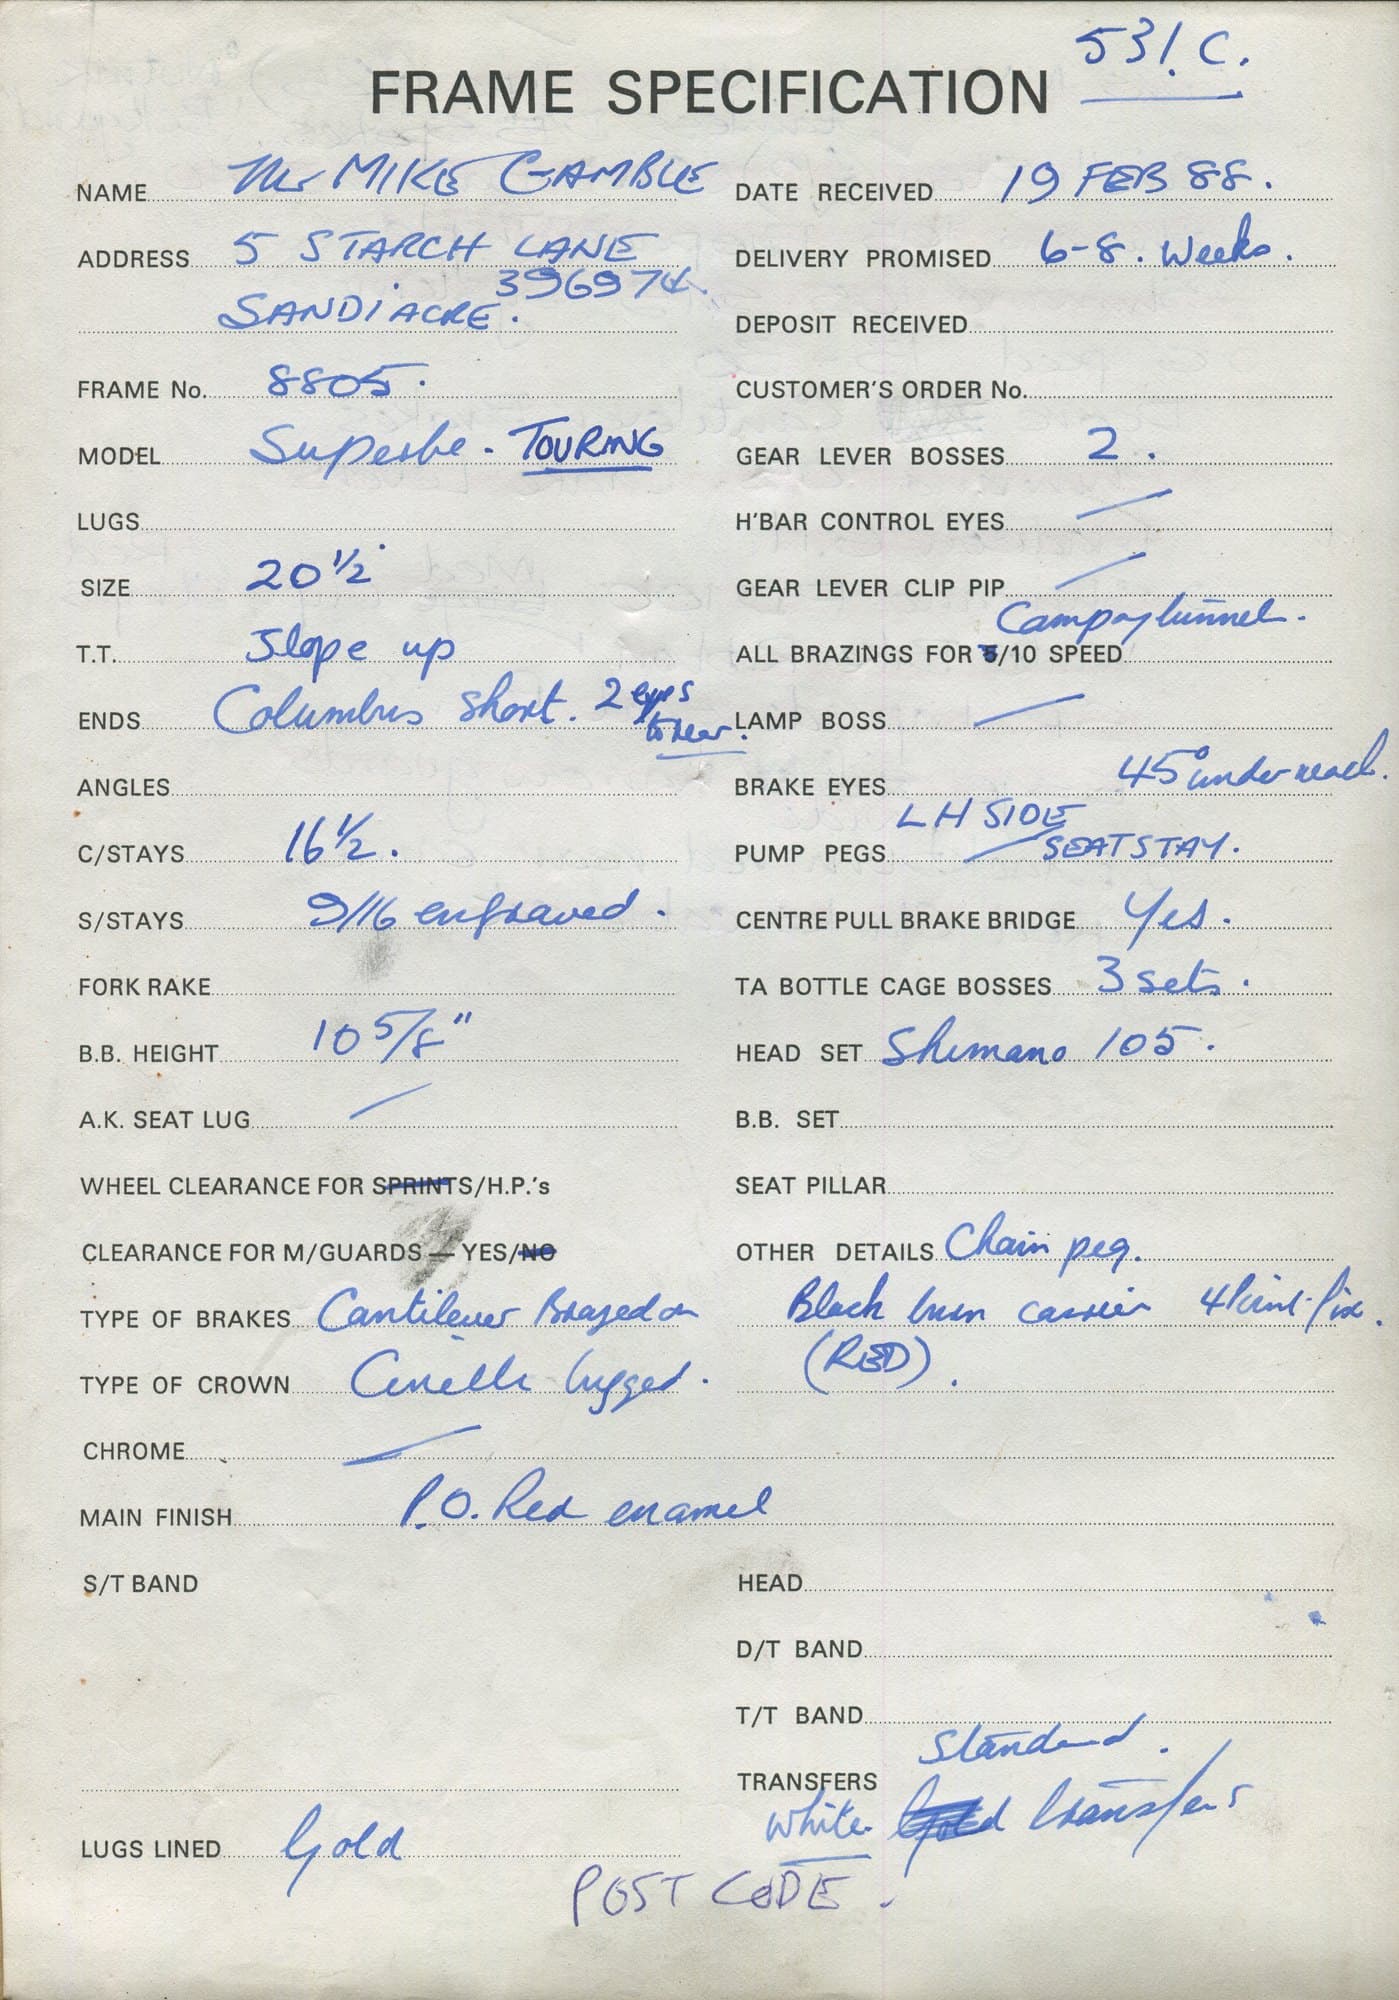 531.C.
FRAME SPECIFICATION
NAME Mr MIKE GAMBLE
ADDRESS 5 STARCH LANE
396974
SANDIACRE.
FRAME No. 8805.
MODEL Superbe - TOURING
LUGS
SIZE 20 1/2
T.T. Slope up
ENDS Columbus short. 2 eyes
to rear.
ANGLES
C/STAYS 16 1/2.
S/STAYS 9/16 engraved.
FORK RAKE
B.B. HEIGHT 10 5/8"
A.K. SEAT LUG /
WHEEL CLEARANCE FOR SPRINTS/H.P.'s
CLEARANCE FOR M/GUARDS — YES/NO
TYPE OF BRAKES Cantilever Brazed on
TYPE OF CROWN Cinelli lugged.
CHROME /
MAIN FINISH P.O. Red enamel
S/T BAND
LUGS LINED Gold
DATE RECEIVED 19 FEB 88.
DELIVERY PROMISED 6-8. Weeks.
DEPOSIT RECEIVED
CUSTOMER'S ORDER No.
GEAR LEVER BOSSES 2.
H'BAR CONTROL EYES /
GEAR LEVER CLIP PIP /
Campag tunnel.
ALL BRAZINGS FOR 5/10 SPEED
LAMP BOSS /
BRAKE EYES 45° under reach.
LH SIDE
PUMP PEGS / SEATSTAY.
CENTRE PULL BRAKE BRIDGE Yes.
TA BOTTLE CAGE BOSSES 3 sets.
HEAD SET Shimano 105.
B.B. SET
SEAT PILLAR
OTHER DETAILS Chain peg.
Black burn carrier 4 Point-fix.
(RED).
HEAD
D/T BAND
T/T BAND
Standard.
TRANSFERS
White Gold transfers
POST CODE.